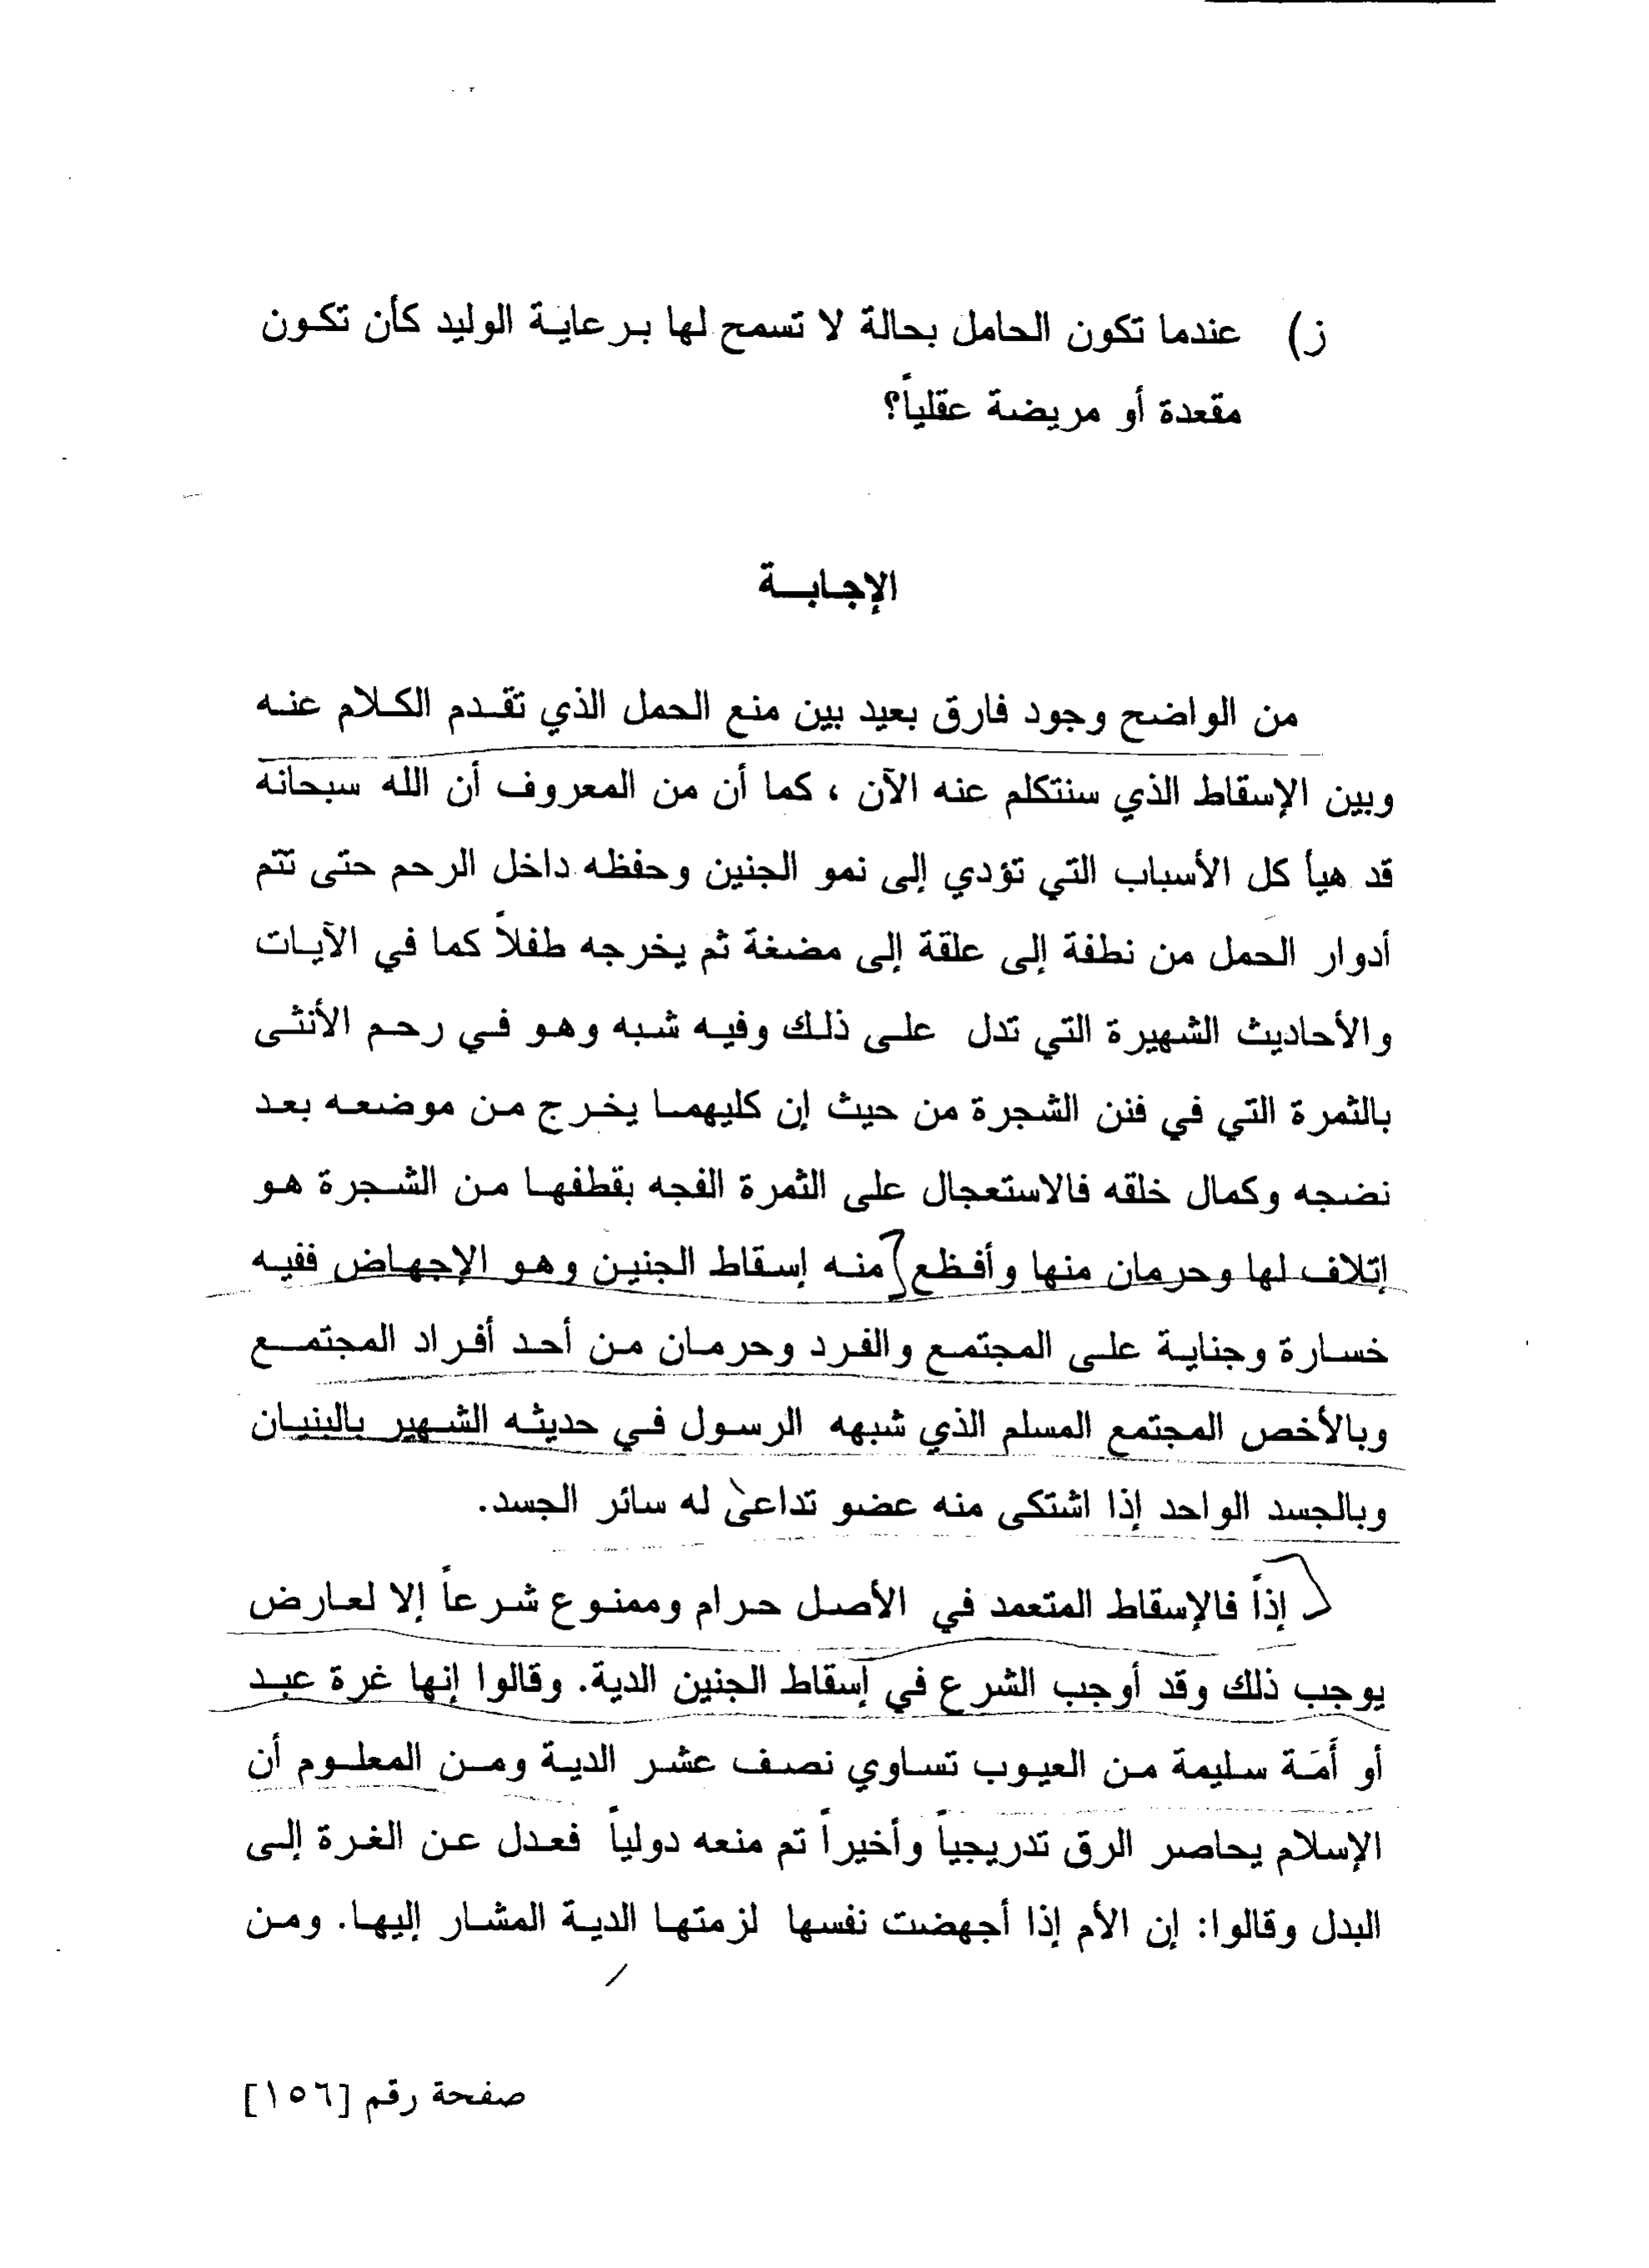 ز) عندما تكون الحامل بحالة لا تسمح لها برعاية الوليد كأن تكون
مقعدة أو مريضة عقلياً؟
الإجابة
من الواضح وجود فارق بعيد بين منع الحمل الذي تقدم الكلام عنه
وبين الإسقاط الذي سنتكلم عنه الآن ، كما أن من المعروف أن الله سبحانه
قد هيأ كل الأسباب التي تؤدي إلى نمو الجنين وحفظه داخل الرحم حتى تتم
أدوار الحمل من نطفة إلى علقة إلى مضغة ثم يخرجه طفلاً كما في الآيات
والأحاديث الشهيرة التي تدل على ذلك وفيه شبه وهو في رحم الأنثى
بالثمرة التي في فنن الشجرة من حيث إن كليهما يخرج من موضعه بعد
نضجه وكمال خلقه فالاستعجال على الثمرة الفجه بقطفها من الشجرة هو
إتلاف لها وحرمان منها وأفظع منه إسقاط الجنين وهو الإجهاض ففيه
خسارة وجناية على المجتمع والفرد وحرمان من أحد أفراد المجتمع
وبالأخص المجتمع المسلم الذي شبهه الرسول في حديثه الشهير بالبنيان
وبالجسد الواحد إذا اشتكى منه عضو تداعىٰ له سائر الجسد.
إذاً فالإسقاط المتعمد في الأصل حرام وممنوع شرعاً إلا لعارض
يوجب ذلك وقد أوجب الشرع في إسقاط الجنين الدية. وقالوا إنها غرة عبد
أو أَمَة سليمة من العيوب تساوي نصف عشر الدية ومن المعلوم أن
الإسلام يحاصر الرق تدريجياً وأخيراً تم منعه دولياً فعدل عن الغرة إلى
البدل وقالوا: إن الأم إذا أجهضت نفسها لزمتها الدية المشار إليها. ومن
صفحة رقم [١٥٦]